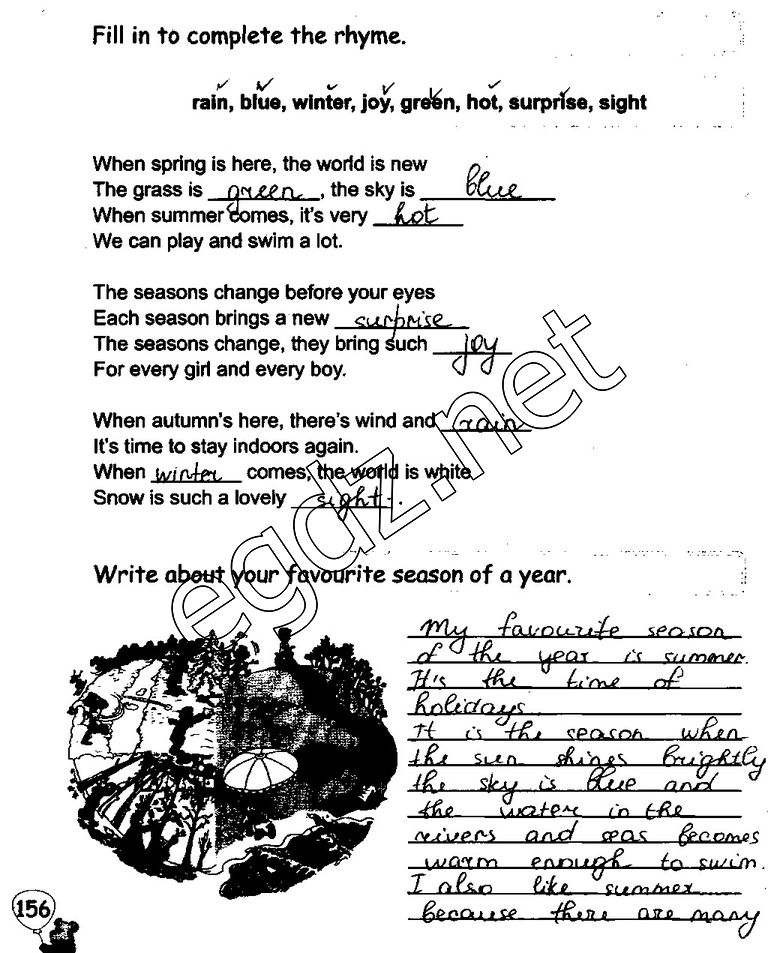 Fill in to complete the rhyme.
rain, blue, winter, joy, green, hot, surprise, sight
When spring is here, the world is new
The grass is green, the sky is blue
When summer comes, it's very hot
We can play and swim a lot.
The seasons change before your eyes
Each season brings a new surprise
The seasons change, they bring such joy
For every girl and every boy.
When autumn's here, there's wind and rain
It's time to stay indoors again.
When winter comes, the world is white
Snow is such a lovely sight.
egdz.net
Write about your favourite season of a year.
My favourite season
of the year is summer.
It's the time of
holidays.
It is the season when
the sun shines brightly
the sky is blue and
the water in the
rivers and seas becomes
warm enough to swim.
I also like summer
because there are many
156